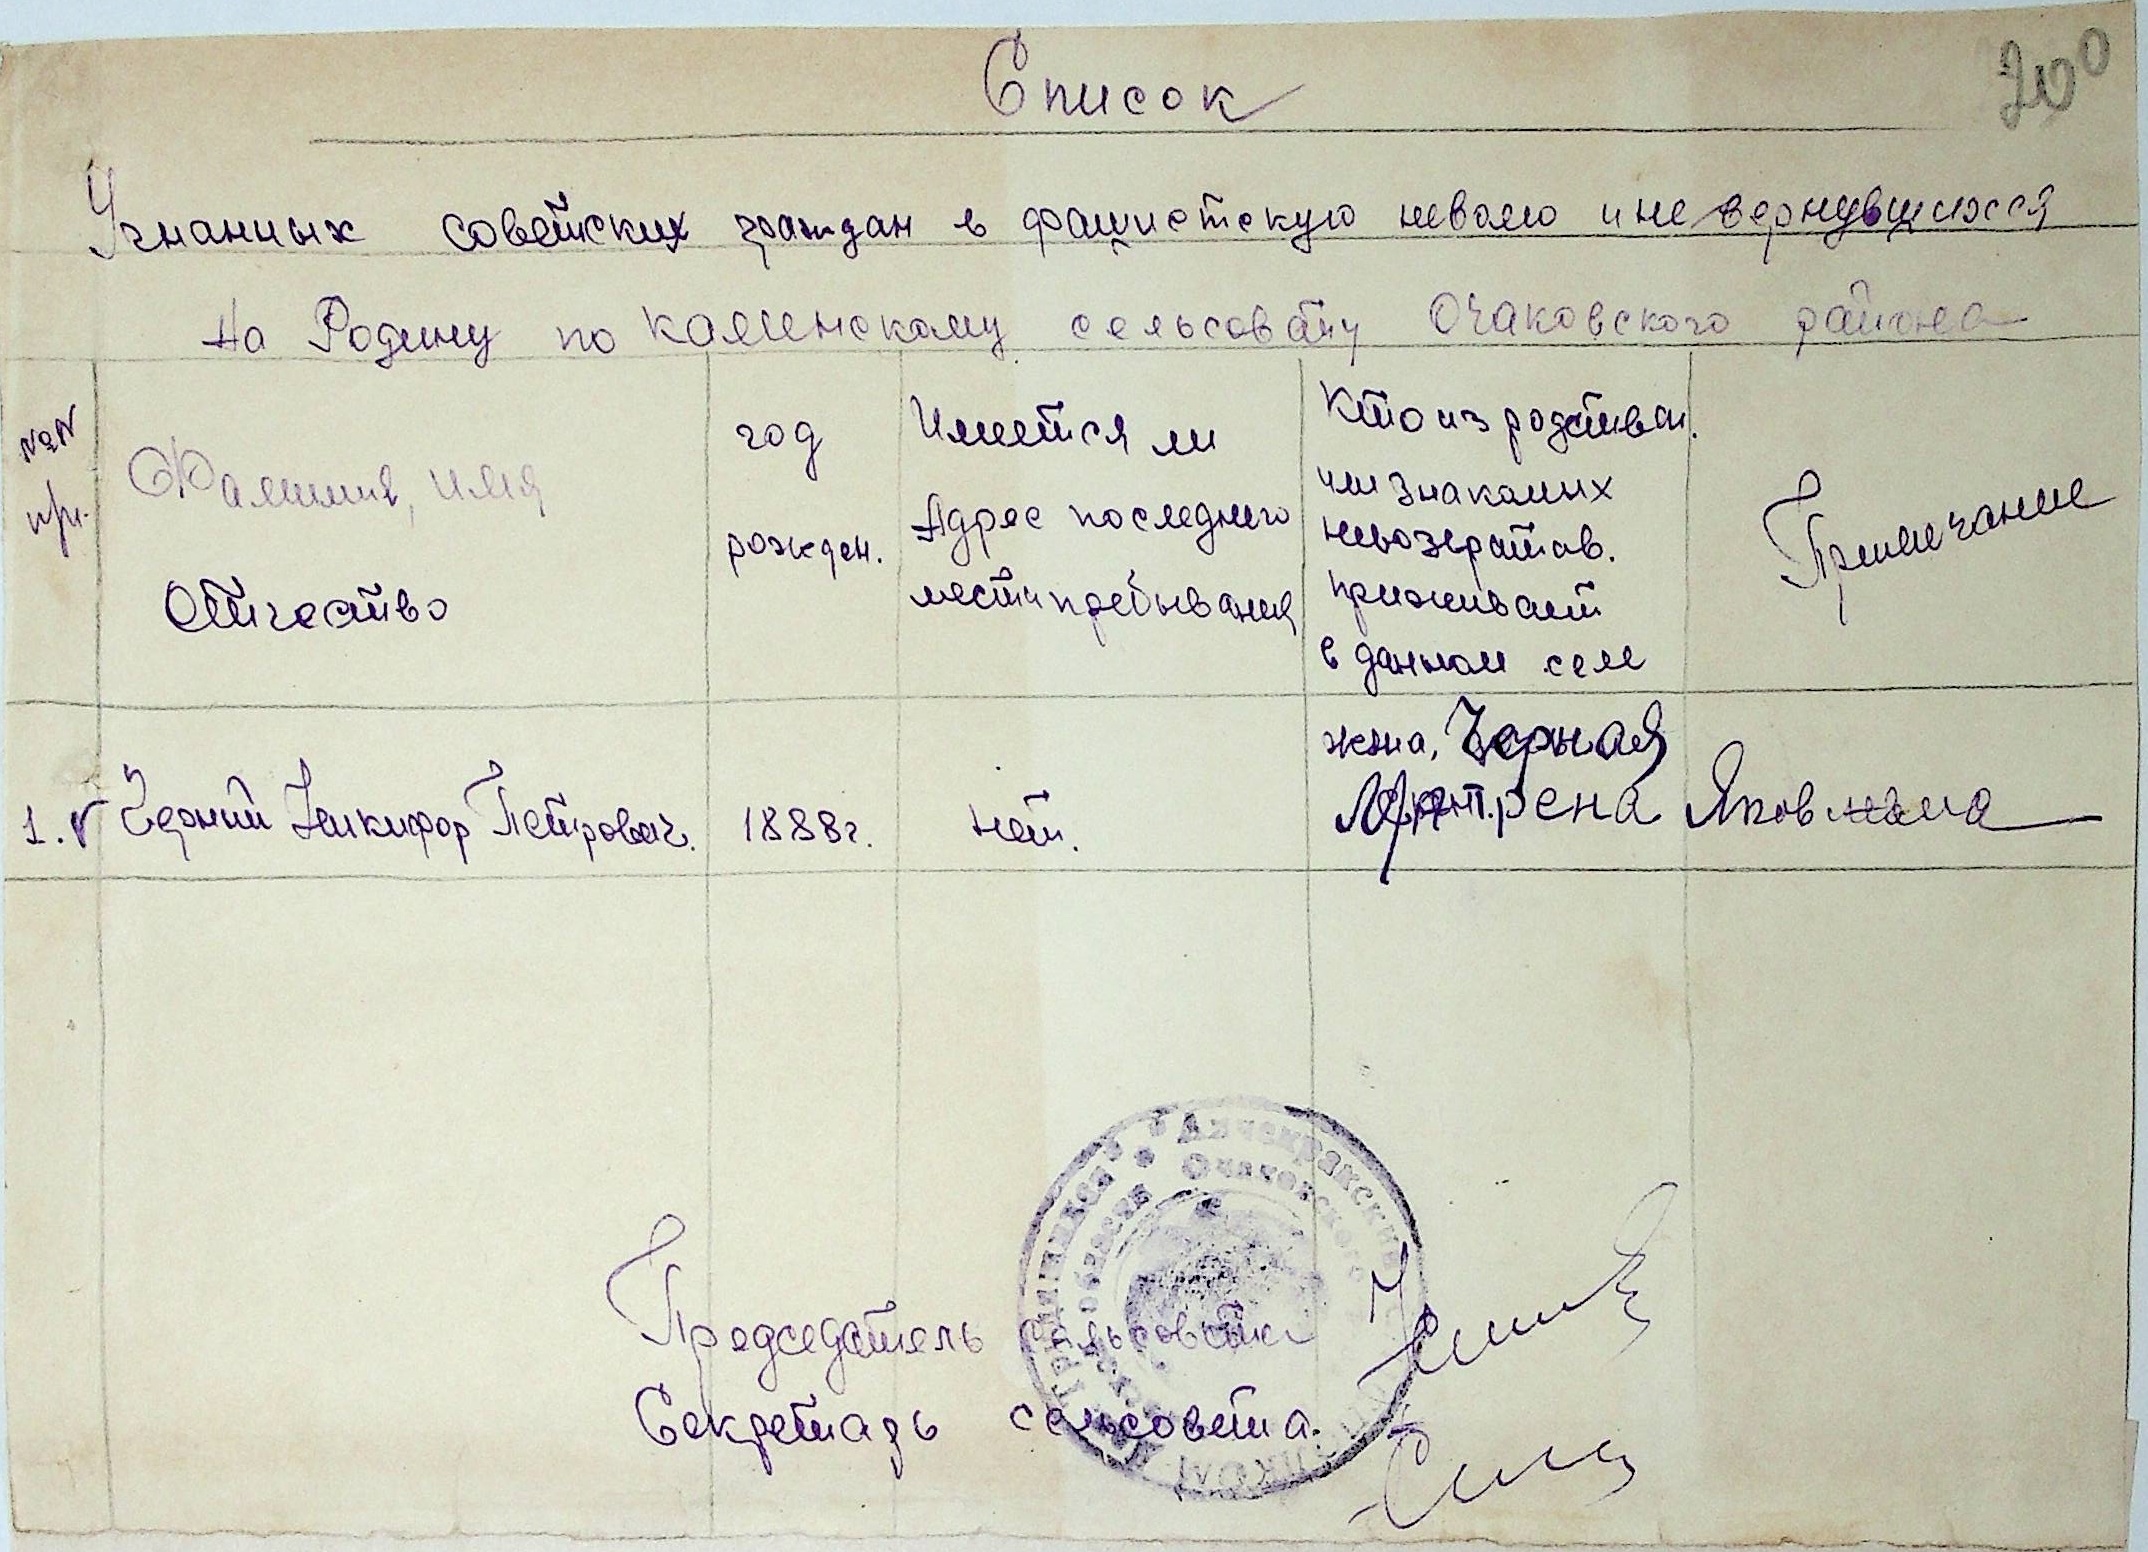 200
Список
Угнанных советских граждан в фашистскую неволю и не вернувшихся
на Родину по Каменскому сельсовету Очаковского района
№№ п/п.
Фамилия, имя
Отчество
год
рожден.
Имеется ли
Адрес последнего
места пребывания
Кто из родствен.
или знакомых
невозвратов.
проживает
в данном селе
Примечание
1. Черний Никифор Петрович.
1888г.
нет.
жена, Черная
Мотрена Яковлевна
Председатель сельсовета
Секретарь сельсовета.